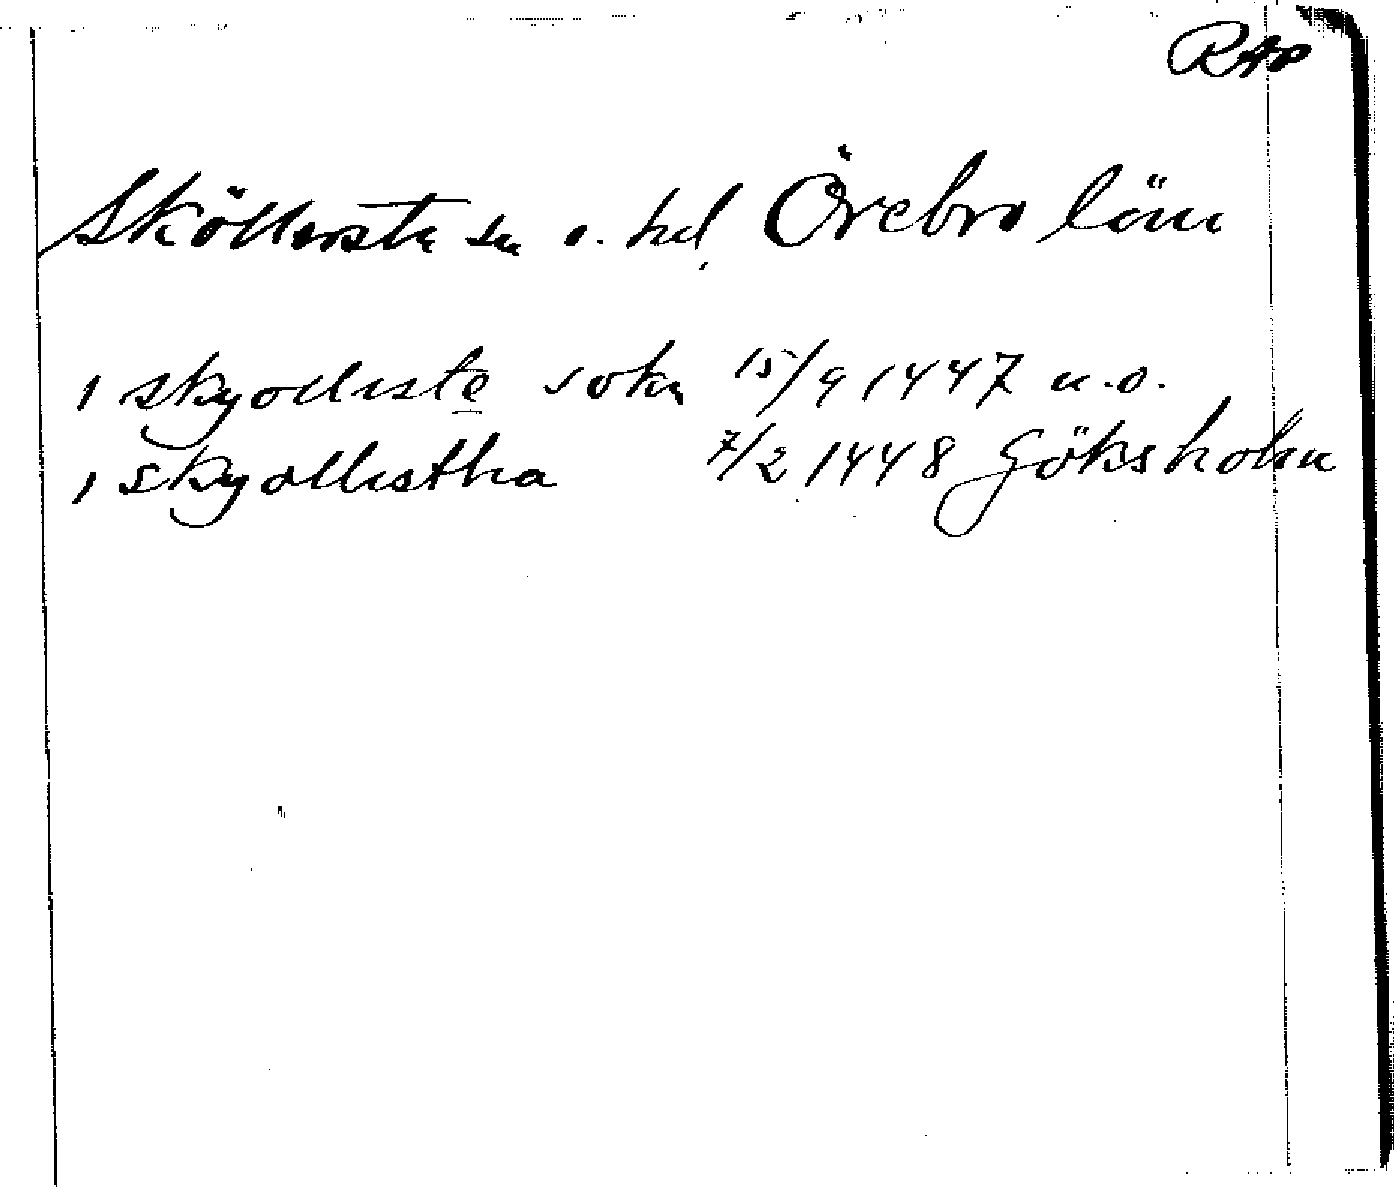 RAP
Sköllersta sn o. hd, Örebro län
i skyollista sokn 15/9 1447 u.o.
i skyollistha 7/2 1448 Göksholm